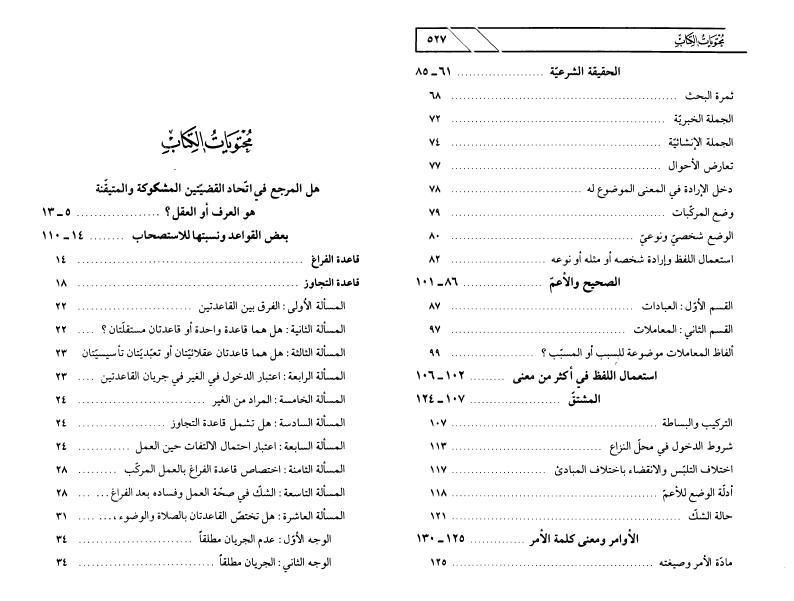 محتويات الكتاب ٥٢٧
الحقيقة الشرعيّة ..................... ٦١ ـ ٨٥
ثمرة البحث ..................... ٦٨
الجملة الخبريّة ..................... ٧٢
الجملة الإنشائيّة ..................... ٧٤
تعارض الأحوال ..................... ٧٧
دخل الإرادة في المعنى الموضوع له ..................... ٧٨
وضع المركّبات ..................... ٧٩
الوضع شخصيّ ونوعيّ ..................... ٨٠
استعمال اللفظ وإرادة شخصه أو مثله أو نوعه ..................... ٨٢
الصحيح والأعمّ ..................... ٨٦ ـ ١٠١
القسم الأوّل : العبادات ..................... ٨٧
القسم الثاني : المعاملات ..................... ٩٧
ألفاظ المعاملات موضوعة للسبب أو المسبّب ؟ ..................... ٩٩
استعمال اللفظ في أكثر من معنى ......... ١٠٢ ـ ١٠٦
المشتقّ ..................... ١٠٧ ـ ١٢٤
التركيب والبساطة ..................... ١٠٧
شروط الدخول في محلّ النزاع ..................... ١١٣
اختلاف التلبّس والانقضاء باختلاف المبادئ ..................... ١١٧
أدلّة الوضع للأعمّ ..................... ١١٨
حالة الشكّ ..................... ١٢١
الأوامر ومعنى كلمة الأمر ..................... ١٢٥ ـ ١٣٠
مادّة الأمر وصيغته ..................... ١٢٥
محتويات الكتاب
هل المرجع في اتّحاد القضيّتين المشكوكة والمتيقّنة
هو العرف أو العقل ؟ ..................... ٥ ـ ١٣
بعض القواعد ونسبتها للاستصحاب ........ ١٤ ـ ١١٠
قاعدة الفراغ ..................... ١٤
قاعدة التجاوز ..................... ١٨
المسألة الأولى : الفرق بين القاعدتين ..................... ٢٢
المسألة الثانية : هل هما قاعدة واحدة أو قاعدتان مستقلّتان ؟ .... ٢٢
المسألة الثالثة : هل هما قاعدتان عقلائيّتان أو تعبّديّتان تأسيسيّتان ٢٣
المسألة الرابعة : اعتبار الدخول في الغير في جريان القاعدتين .... ٢٣
المسألة الخامسة : المراد من الغير ..................... ٢٤
المسألة السادسة : هل تشمل قاعدة التجاوز ..................... ٢٤
المسألة السابعة : اعتبار احتمال الالتفات حين العمل ............ ٢٤
المسألة الثامنة : اختصاص قاعدة الفراغ بالعمل المركّب ......... ٢٨
المسألة التاسعة : الشكّ في صحّة العمل وفساده بعد الفراغ ... ... ٢٨
المسألة العاشرة : هل تختصّ القاعدتان بالصلاة والوضوء ، ... .... ٣١
الوجه الأوّل : عدم الجريان مطلقاً ..................... ٣٤
الوجه الثاني : الجريان مطلقاً ..................... ٣٤